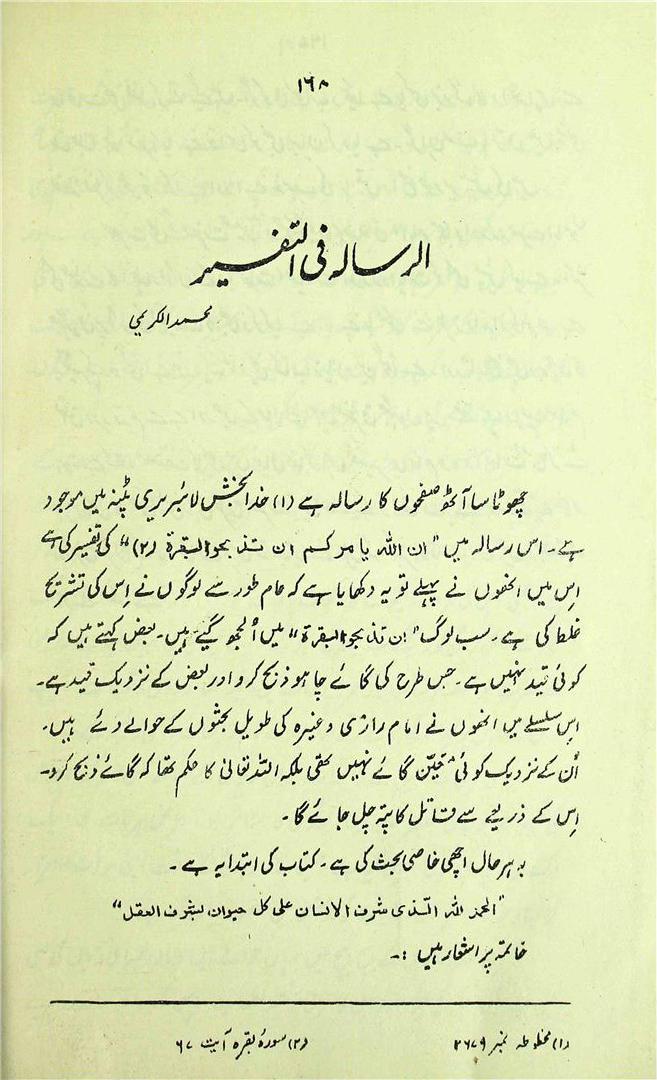 ۱۶۸
الرسالہ فی التفسیر
محمد الکریمی
چھوٹا سا آٹھ صفحوں کا رسالہ ہے (۱) خدا بخش لائبریری پٹنہ میں موجود
ہے۔ اس رسالہ میں "ان اللہ یا مرکم ان تذبحوا البقرۃ (۲)" کی تفسیر کی ہے
اس میں انھوں نے پہلے تو یہ دکھایا ہے کہ عام طور سے لوگوں نے اس کی تشریح
غلط کی ہے۔ سب لوگ "ان تذبحوا البقرۃ" میں اُلجھ گیے ہیں۔ بعض کہتے ہیں کہ
کوئی قید نہیں ہے۔ جس طرح کی گائے چاہو ذبح کرو اور بعض کے نزدیک قید ہے۔
اس سلسلے میں انھوں نے امام رازی وغیرہ کی طویل بحثوں کے حوالے دئے ہیں۔
اُن کے نزدیک کوئی متعیّن گائے نہیں تھی بلکہ اللہ تعالیٰ کا حکم تھا کہ گائے ذبح کرو۔
اس کے ذریعے سے قاتل کا پتہ چل جائے گا۔
بہر حال اچھی خاصی بحث کی ہے۔ کتاب کی ابتدا یہ ہے۔
"الحمد للہ الّذی شرف الانسان علی کل حیوان، بشرف العقل"
خاتمہ پر اشعار ہیں :۔
(۱) مخطوطہ نمبر ۲۶۷۹ (۲) سورۂ بقرہ آیت ۶۷